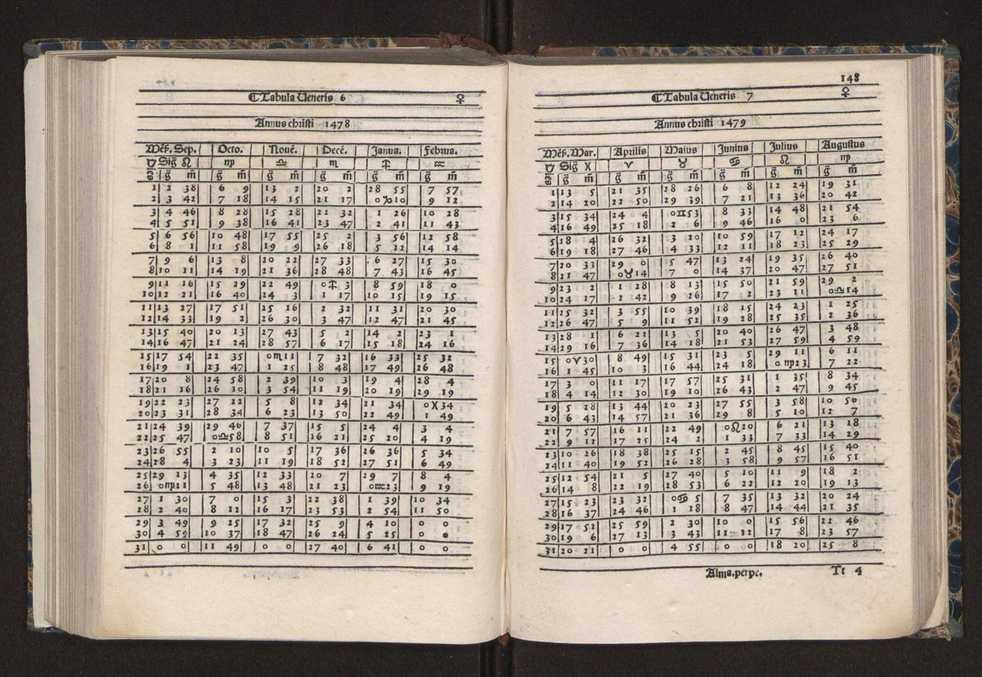 ⅭTabula Ueneris 6 ♀
Annus christi 1478
Mēſ. Sep. Octo. Nouē. Decē. Janua. Februa.
Sig ♌ ♍ ♎ ♏ ♐ ♒
g m̄ g m̄ g m̄ g m̄ g m̄ g m̄
1 2 38 6 9 13 2 20 2 28 55 7 57
2 3 42 7 18 14 15 21 17 0♑10 9 12
3 4 46 8 28 15 28 22 32 1 26 10 28
4 5 51 9 38 16 41 23 47 2 41 11 43
5 6 56 10 48 17 55 25 2 3 56 12 58
6 8 1 11 58 19 9 26 18 5 12 14 14
7 9 6 13 8 20 22 27 33 6 27 15 30
8 10 11 14 19 21 36 28 48 7 43 16 45
9 11 16 15 29 22 49 0♐3 8 59 18 0
10 12 21 16 40 24 3 1 17 10 15 19 15
11 13 27 17 51 25 16 2 32 11 31 20 30
12 14 33 19 2 26 30 3 47 12 47 21 45
13 15 40 20 13 27 43 5 2 14 2 23 1
14 16 47 21 24 28 57 6 17 15 18 24 16
15 17 54 22 35 0♏11 7 32 16 33 25 32
16 19 1 23 47 1 25 8 48 17 49 26 48
17 20 8 24 58 2 39 10 3 19 4 28 4
18 21 16 26 10 3 54 11 19 20 19 29 19
19 22 23 27 22 5 8 12 34 21 34 0♓34
20 23 31 28 34 6 23 13 50 22 49 1 49
21 24 39 29 46 7 37 15 5 24 4 3 4
22 25 47 0♎58 8 51 16 21 25 20 4 19
23 26 55 2 10 10 5 17 36 26 36 5 34
24 28 4 3 23 11 19 18 52 27 51 6 49
25 29 13 4 35 12 33 20 7 29 7 8 4
26 0♍21 5 48 13 48 21 23 0♒23 9 19
27 1 30 7 0 15 3 22 38 1 39 10 34
28 2 40 8 12 16 17 23 53 2 54 11 50
29 3 49 9 25 17 32 25 9 4 10 0 0
30 4 59 10 37 18 47 26 24 5 25 0 0
31 0 0 11 49 0 0 27 40 6 41 0 0
148
ⅭTabula Ueneris 7 ♀
Annus christi 1479
Mēſ. Mar. Aprilis Maius Junius Julius Augustus
Sig ♓ ♈ ♉ ♋ ♌ ♍
g m̄ g m̄ g m̄ g m̄ g m̄ g m̄
1 13 5 21 35 28 26 6 8 12 24 19 31
2 14 20 22 50 29 39 7 21 13 36 20 42
3 15 34 24 4 0♊53 8 33 14 48 21 54
4 16 49 25 18 2 6 9 46 16 0 23 6
5 18 4 26 32 3 20 10 59 17 12 24 17
6 19 18 27 46 4 33 12 11 18 23 25 29
7 20 33 29 0 5 47 13 24 19 35 26 40
8 21 47 0♉14 7 0 14 37 20 47 27 51
9 23 2 1 28 8 13 15 50 21 59 29 2
10 24 17 2 42 9 26 17 2 23 11 0♎14
11 25 32 3 55 10 39 18 15 24 23 1 25
12 26 47 5 9 11 52 19 28 25 35 2 36
13 28 1 6 21 13 5 20 40 26 47 3 48
14 29 16 7 36 14 18 21 53 27 59 4 59
15 0♈30 8 49 15 31 23 5 29 11 6 11
16 1 45 10 3 16 44 24 18 0♍23 7 22
17 3 0 11 17 17 57 25 31 1 35 8 34
18 4 14 12 30 19 10 26 43 2 47 9 45
19 5 28 13 44 20 23 27 55 3 58 10 56
20 6 43 14 57 21 36 29 8 5 10 12 7
21 7 57 16 11 22 49 0♌20 6 21 13 18
22 9 12 17 25 24 2 1 33 7 33 14 29
23 10 26 18 38 25 15 2 45 8 45 15 40
24 11 40 19 52 26 28 3 58 9 57 16 51
25 12 54 21 5 27 40 5 10 11 9 18 2
26 14 8 22 19 28 53 6 22 12 20 19 13
27 15 23 23 32 0♋5 7 35 13 32 20 24
28 16 37 24 46 1 18 8 47 14 44 21 35
29 17 52 25 59 2 30 10 0 15 56 22 46
30 19 6 27 13 3 43 11 12 17 8 23 57
31 20 21 0 0 4 55 0 0 18 20 25 8
Alma. perpe. Tt 4